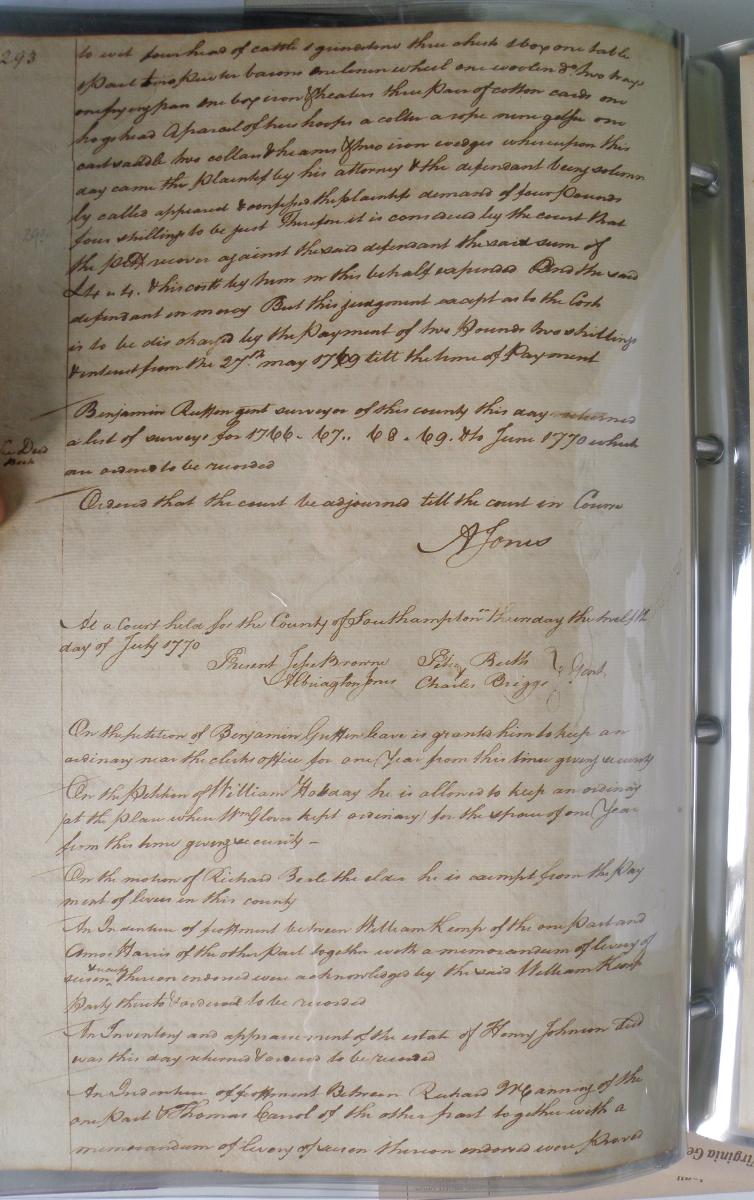 293
to wit four head of cattle 1 grindstone three chests 1 box one table
1 Pail two pewter basons one linen wheel one woolen do. two trays
one frying pan one box iron & heaters three pair of cotton cards one
hogshead A parcel of tree hoops a collar a rope nine geese one
cart saddle two collars & heams & two iron wedges whereupon this
day came the plaintif by his attorney & the defendant being solemn
ly called appeared & confessed the plaintifs demand of four Pounds
four shillings to be just Therefore it is considered by the court that
the plt recover against the said defendant the said sum of
£4 " 4. & his costs by him in this behalf expended And the said
defendant in mercy But this judgment except as to the Costs
is to be discharged by the Payment of two Pounds two shillings
& interest from the 27th may 1769 till the time of Payment
Benjamin Ruffin gent surveyor of this county this day returned
a list of surveys for 1766 - 67 .. 68 . 69. & to June 1770 which
are ordered to be recorded
Deed
Book
Ordered that the court be adjourned till the court in Course
A Jones
At a Court held for the County of Southampton on thursday the twelfth
day of July 1770
Present Jesse Browne
Albridgton Jones
Charles Briggs
Gent.
On the petition of Benjamin Griffin leave is granted him to keep an
ordinary near the clerks office for one Year from this time giving security
On the Petition of William Hobday he is allowed to keep an ordinary
at the place where Wm Glover kept ordinary for the space of one Year
from this time giving security -
On the motion of Richard Beale the elder he is exempt from the Pay
ment of levies in this county
An Indenture of feoffment between William Kemp of the one Part and
Amos Harris of the other Part together with a memorandum of livery of
seisen thereon endorsed were acknowledged by the said William Kemp
Party thereto & ordered to be recorded
An Inventory and appraisement of the estate of Henry Johnson Decd
was this day returned & ordered to be recorded
An Indenture of feoffment Between Richard Manning of the
one Part & Thomas Carrol of the other part together with a
memorandum of livery of seisen thereon endorsed were proved
Virginia Ge